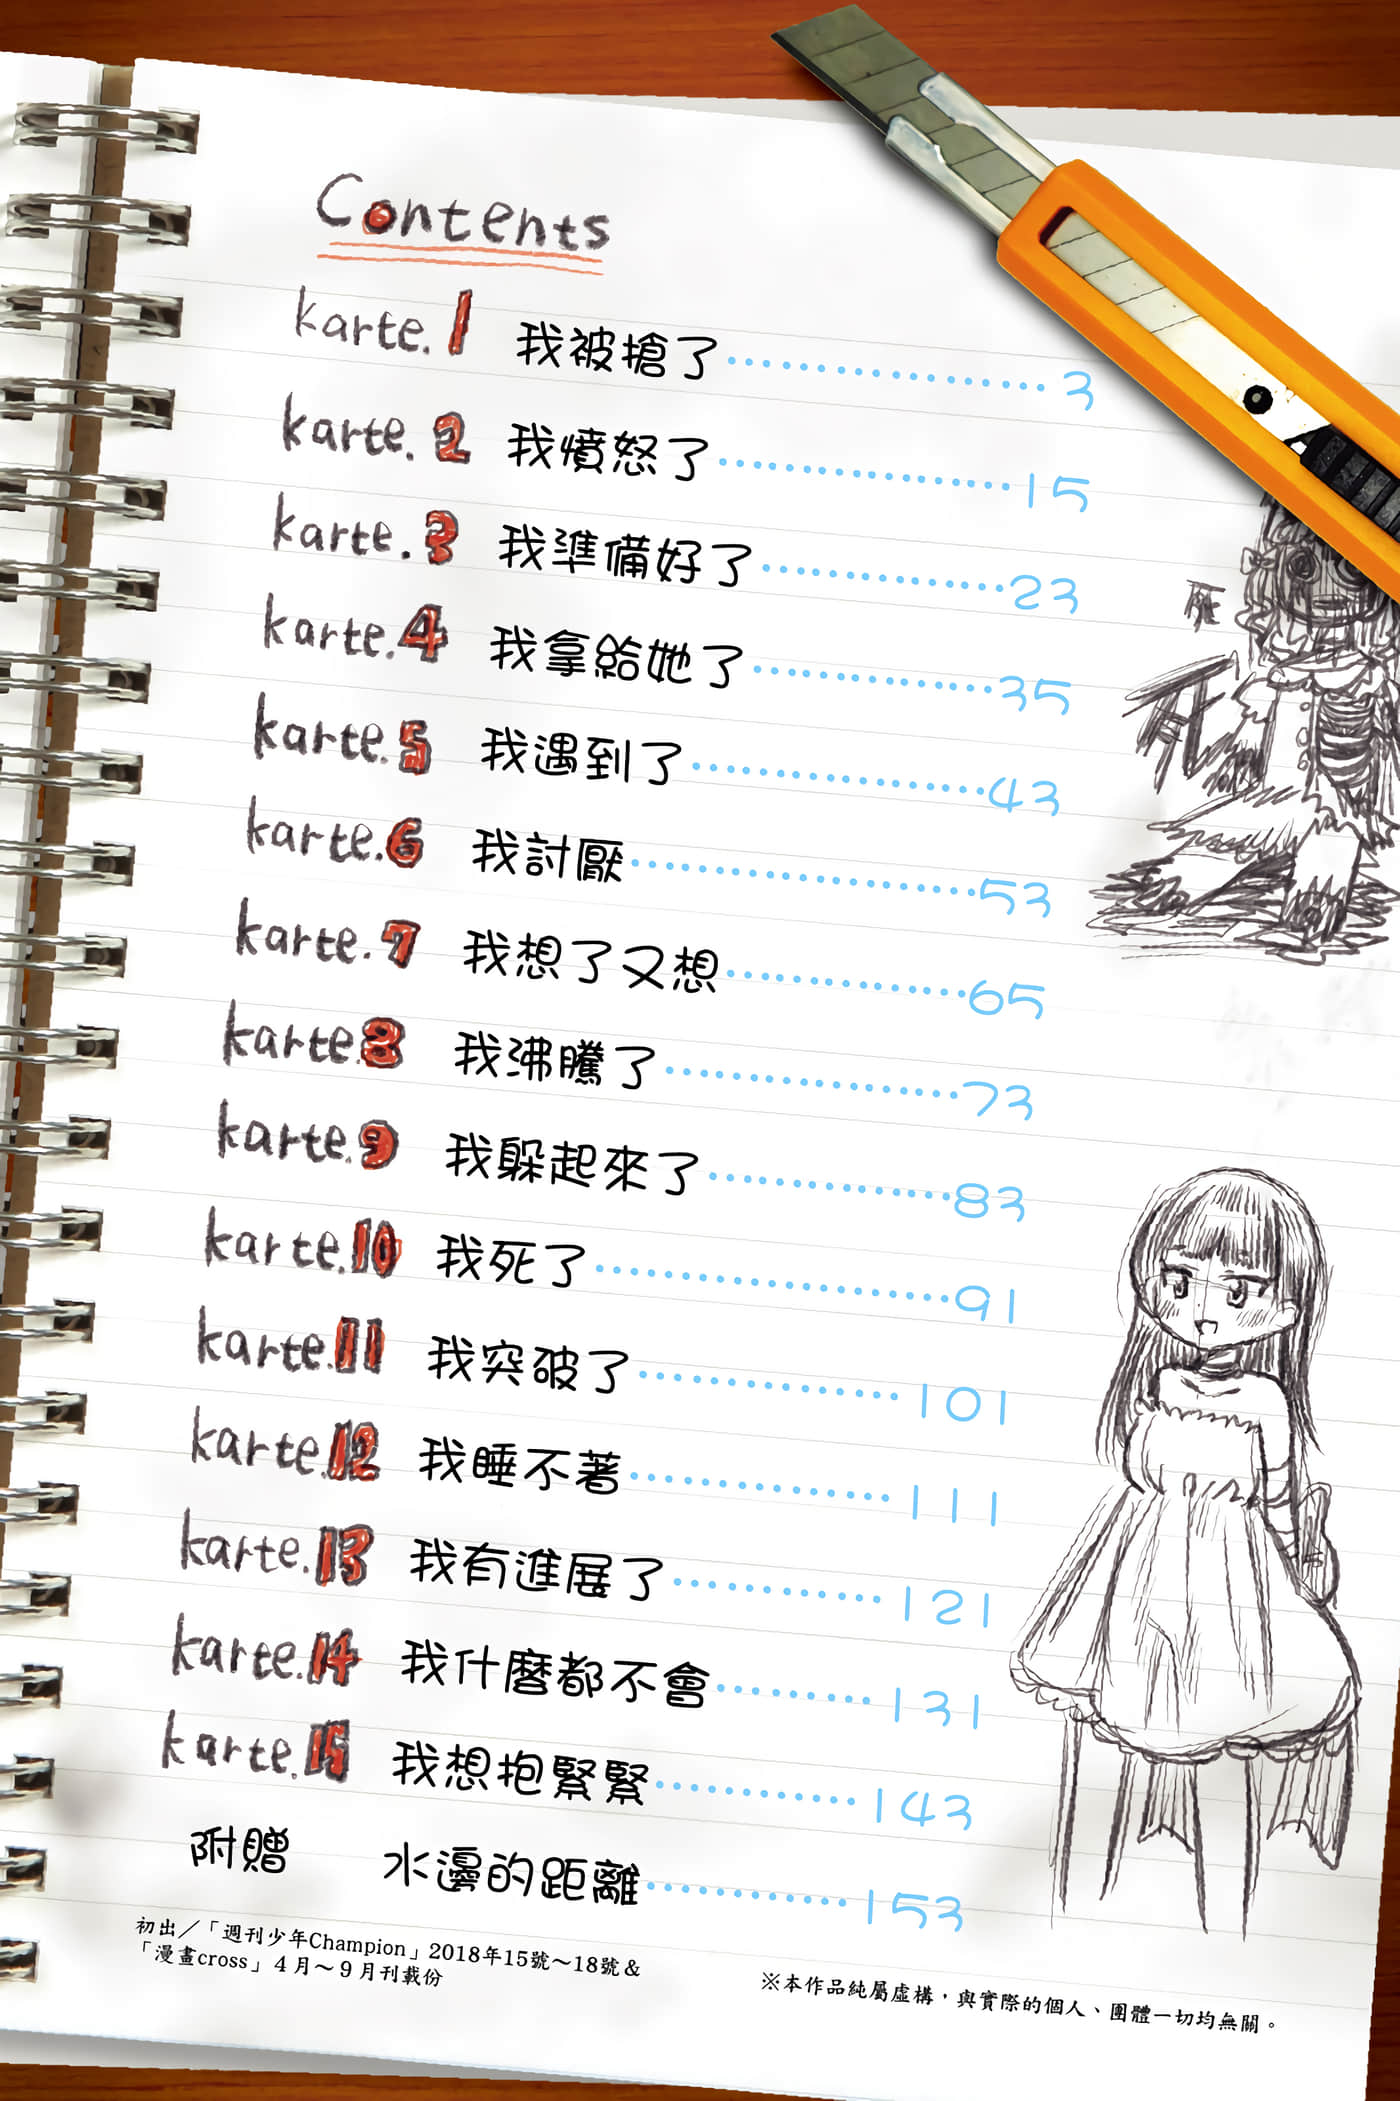 Contents
karte.1 我被搶了………………3
karte.2 我憤怒了………………15
karte.3 我準備好了………………23
karte.4 我拿給她了………………35
karte.5 我遇到了………………43
karte.6 我討厭………………53
karte.7 我想了又想………………65
karte.8 我沸騰了………………73
karte.9 我躲起來了………………83
karte.10 我死了………………91
karte.11 我突破了………………101
karte.12 我睡不著………………111
karte.13 我有進展了………………121
karte.14 我什麼都不會………………131
karte.15 我想抱緊緊………………143
附贈 水邊的距離………………153
初出／「週刊少年Champion」2018年15號～18號＆
「漫畫cross」4月～9月刊載份
※本作品純屬虛構，與實際的個人、團體一切均無關。